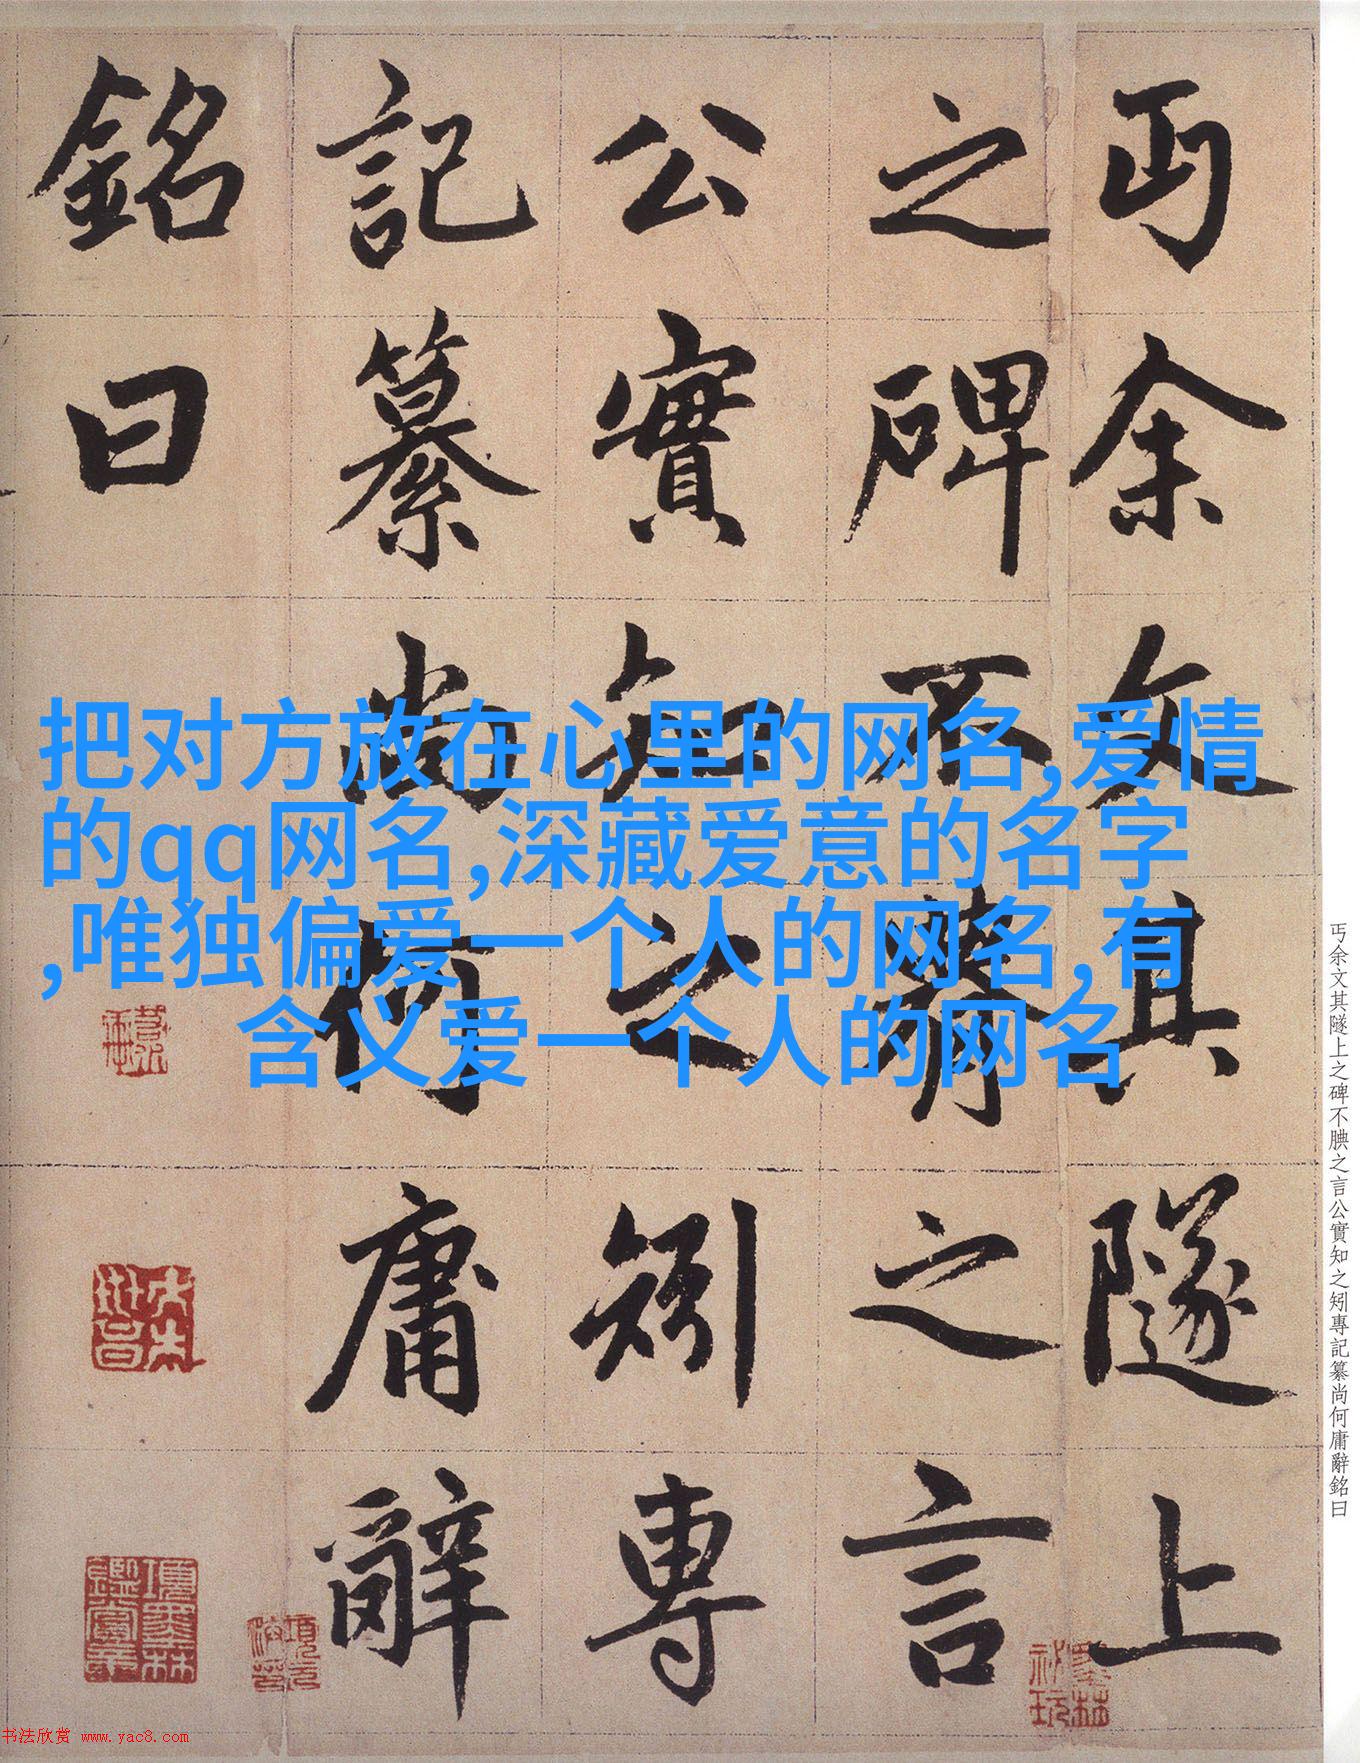 丐余文其隧上
之碑不腆之言
公實知之矧專
記纂尚何庸辭
銘曰
把对方放在心里的网名,爱情
的qq网名,深藏爱意的名字
,唯独偏爱一个人的网名,有
含义爱一个人的网名
丐余文其隧上之碑不腆之言公實知之矧專記纂尚何庸辭銘曰
项墨林鑑賞章
书法欣赏 www.yac8.com